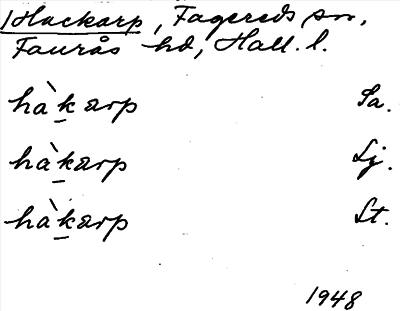 Hackarp, Fagereds sn,
Faurås hd, Hall. l.
hàkarp Sa.
hàkarp Lj.
hàkarp Lt.
1948